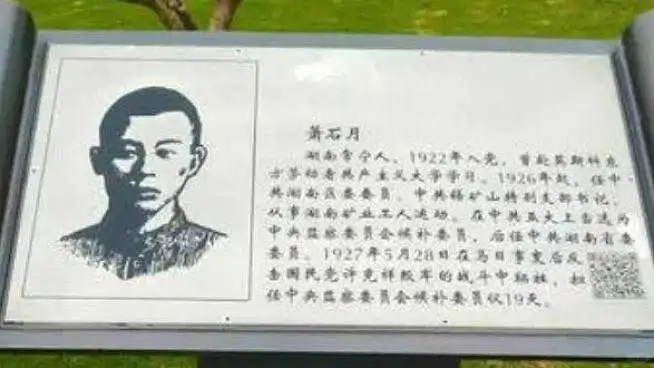 萧石月
湖南常宁人，1922年入党，曾赴莫斯科东
方劳动者共产主义大学学习。1926年起，任中
共湖南区委委员、中共锡矿山特别支部书记，
从事湖南矿业工人运动。在中共五大上当选为
中央监察委员会候补委员，后任中共湖南省委
委员。1927年5月28日在马日事变后反
击国民党许克祥叛军的战斗中牺牲，担
任中央监察委员会候补委员仅19天。